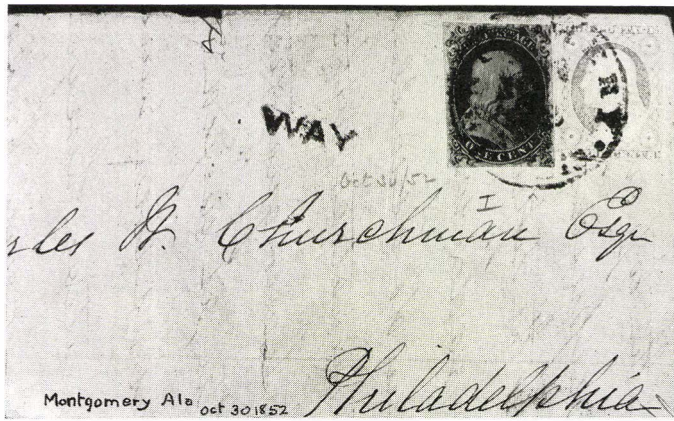 WAY
ONE CENT
Oct 30/52
I
rles W. Churchman Esqr
Philadelphia
Montgomery Ala oct 30 1852